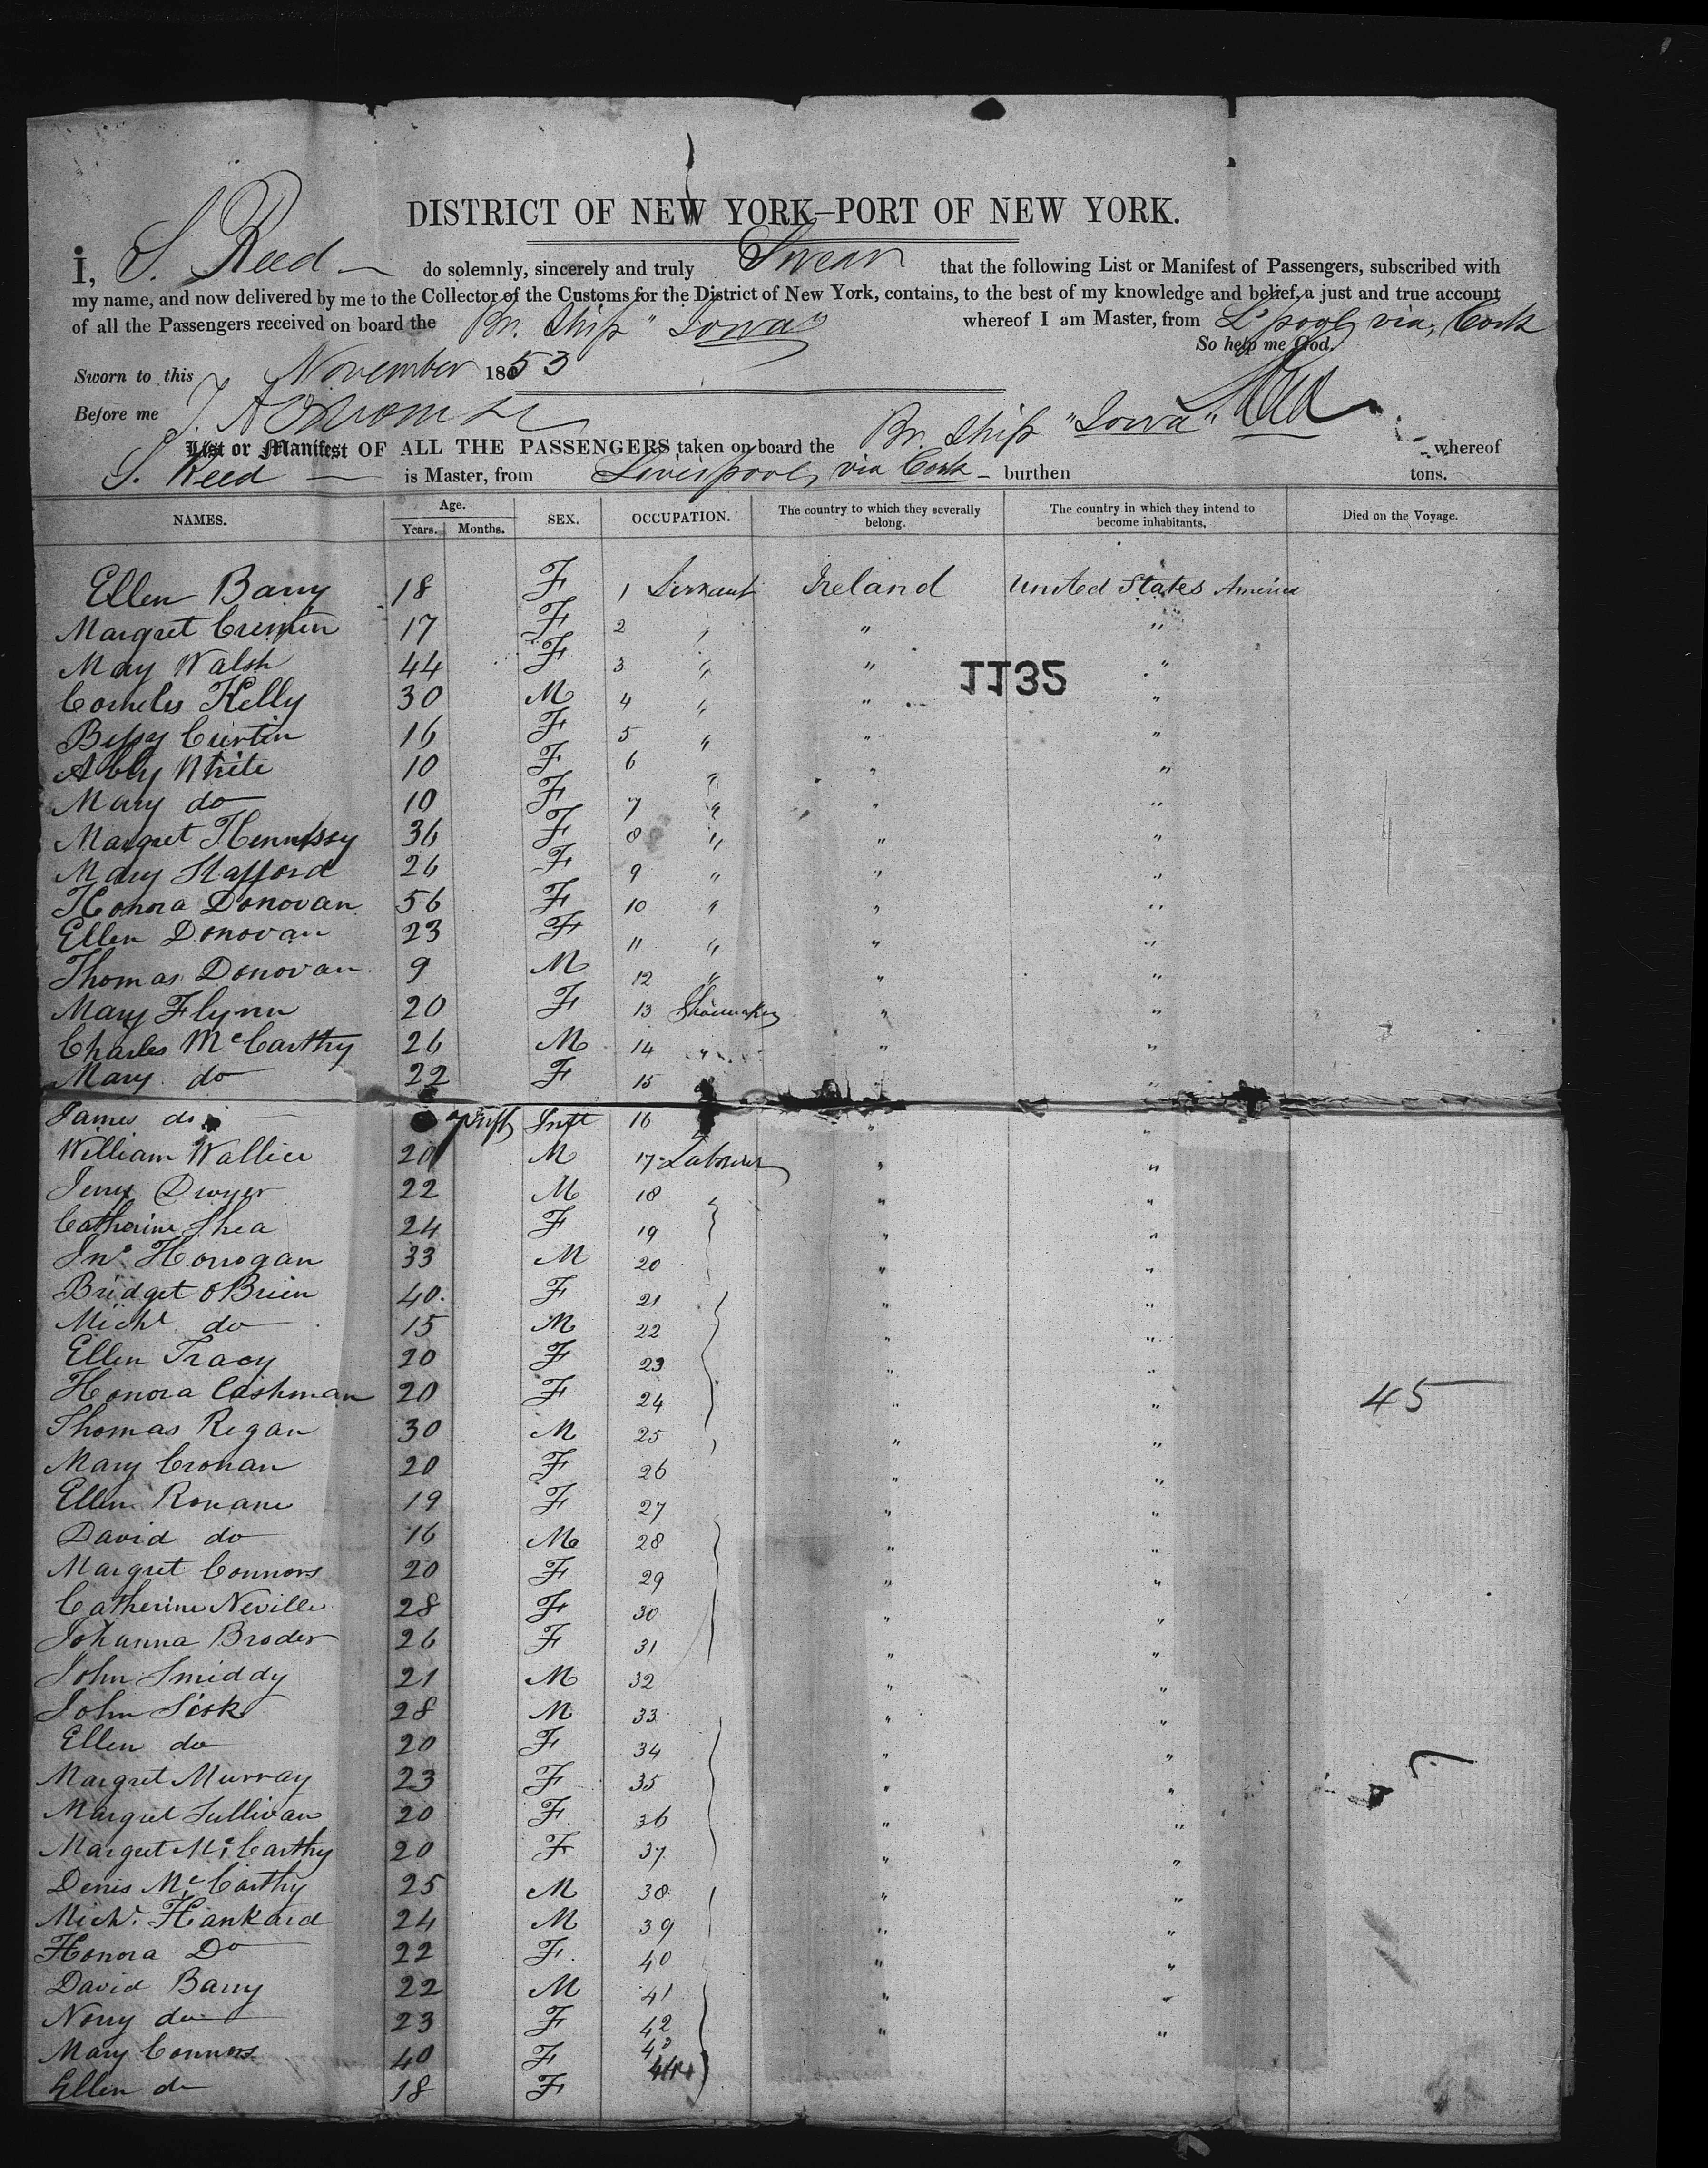 DISTRICT OF NEW YORK—PORT OF NEW YORK.
I, S. Reed — do solemnly, sincerely and truly Swear that the following List or Manifest of Passengers, subscribed with
my name, and now delivered by me to the Collector of the Customs for the District of New York, contains, to the best of my knowledge and belief, a just and true account
of all the Passengers received on board the Br. Ship "Iowa" whereof I am Master, from L'pool, via, Cork
So help me God.
Sworn to this November 1853 S Reed
Before me
List or Manifest OF ALL THE PASSENGERS taken on board the Br. Ship "Iowa" whereof
S. Reed — is Master, from Liverpool, via Cork — burthen tons.
NAMES. Age. Years. Months. SEX. OCCUPATION. The country to which they severally belong. The country in which they intend to become inhabitants. Died on the Voyage.
Ellen Barry 18 F 1 Servant Ireland United States America
Margret 17 F 2 " " "
May Walsh 44 F 3 " " "
1135
Cornelis Kelly 30 M 4 " " "
Bessy Curtin 16 F 5 " " "
Abby White 10 F 6 " " "
Mary do 10 F 7 " " "
Margret Hennessy 36 F 8 " " "
Mary Stafford 26 F 9 " " "
Honora Donovan 56 F 10 " " "
Ellen Donovan 23 F 11 " " "
Thomas Donovan 9 M 12 " " "
Mary Flynn 20 F 13 Shoemaker " "
Charles McCarthy 26 M 14 " " "
Mary do 22 F 15 " "
James do Inft 16 " "
William Wallice 20 M 17 Labourer " "
Jerry Dwyer 22 M 18 " "
Catherine Shea 24 F 19 " "
Jno. Honogan 33 M 20 " "
Bridget OBrien 40 F 21 " "
Michl do 15 M 22 " "
Ellen Tracy 20 F 23 " "
Honora Cashman 20 F 24 " " 45
Thomas Regan 30 M 25 " "
Mary Cronan 20 F 26 " "
Ellen Ronane 19 F 27 " "
David do 16 M 28 " "
Margret Connors 20 F 29 " "
Catherine Neville 28 F 30 " "
Johanna Broder 26 F 31 " "
John Smiddy 21 M 32 " "
John Sisk 28 M 33 " "
Ellen do 20 F 34 " "
Margret Murray 23 F 35 " "
Margret Sullivan 20 F 36 " "
Margret McCarthy 20 F 37 " "
Denis McCarthy 25 M 38 " "
Michl. Hankard 24 M 39 " "
Honora Do 22 F 40 " "
David Barry 22 M 41 " "
Norry do 23 F 42 " "
Mary Connors 40 F 43
Ellen do 18 F 44